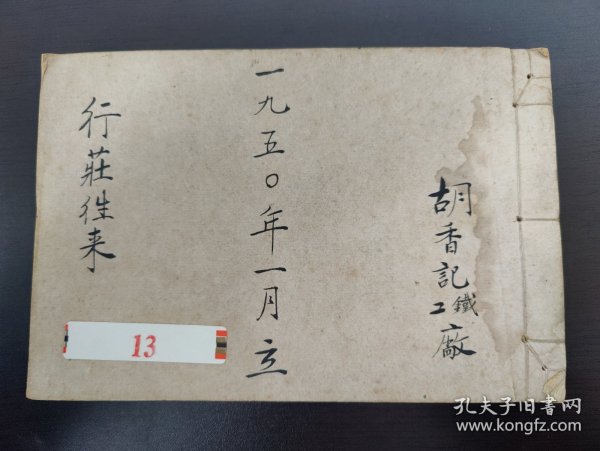 胡香記鐵工廠
一九五〇年一月立
行莊往来
13
孔夫子旧书网
www.kongfz.com